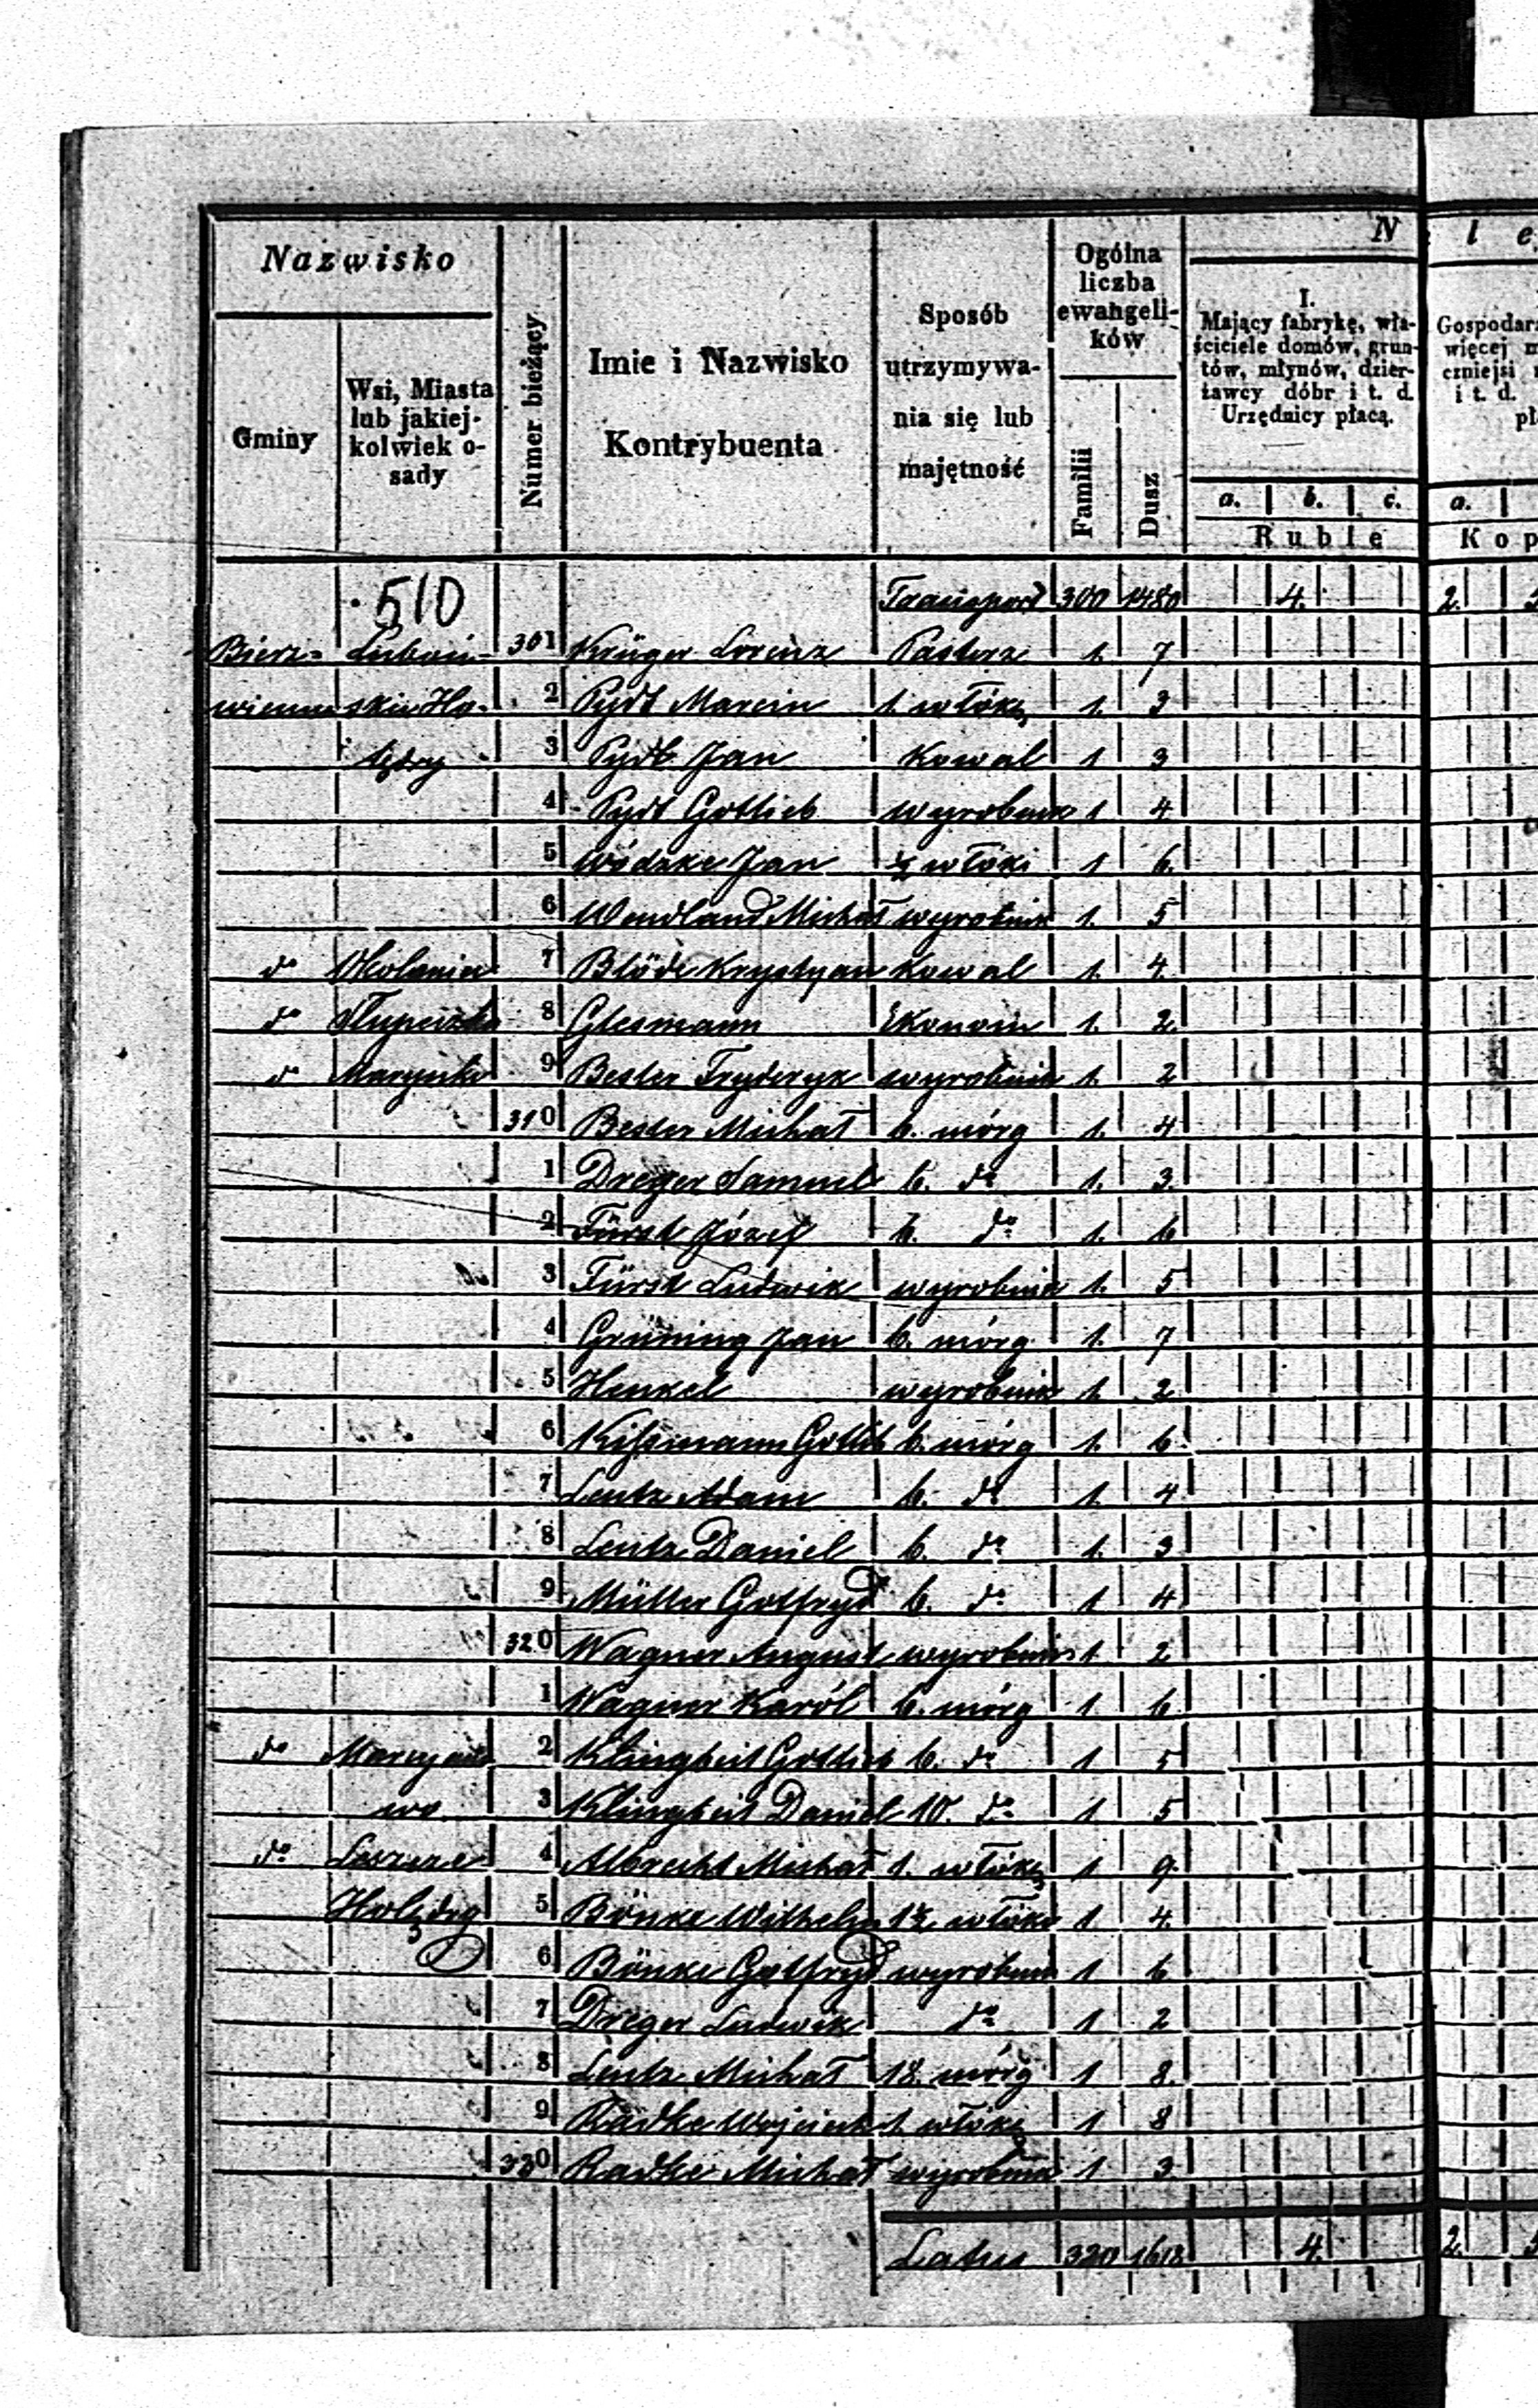 Nazwisko
Gminy
Wsi, Miasta
lub jakiej-
kolwiek o-
sady
Numer bieżący
Imie i Nazwisko
Kontrybuenta
Sposób
utrzymywa-
nia się lub
majętność
Ogólna
liczba
ewangeli-
ków
Familii
Dusz
N
I.
Mający fabrykę, wła-
ściciele domów, grun-
tów, młynów, dzier-
żawcy dóbr i t. d.
Urzędnicy płacą.
a. b. c.
Ruble
l e
Gospodar
więcej m
czniejsi
i t. d.
pł
a.
Kop
510 Transport 300 1480 4. 2.
Bierz= 301 Krüger Lorenz Pasterz 1. 7
2 Pydt Marcin 1. włókę 1. 3
3 Pydt Jan Kowal 1 3
4 Pydt Gottlieb wyrobnik 1 4
5 Wódzke Jan ½ włóki 1 6.
6 Wendland Michał wyrobnik 1. 5
do 7 Krystyan Kowal 1. 4.
do 8 Glesmann Ekonom 1. 2.
do 9 Bester Fryderyk wyrobnik 1. 2
310 Bester Michał 6. mórg 1. 4
1 Dreger Samuel 6. do 1. 3.
2 Fürst Józef 6. do 1. 6
3 Fürst Ludwik wyrobnik 1. 5
4 Grüning Jan 6. mórg 1. 7
5 Henkel wyrobnik 1. 2
6 Kissmann Gottlib 6. mórg 1. 6.
7 Lentz Adam 6. do 1. 4
8 Lentz Daniel 6. do 1. 3
9 Müller Gotfryd 6. do 1 4
320 Wagner August wyrobnik 1 2
1 Wagner Karól 6. mórg 1 6
do Maryano 2 Klingbeil Gottlieb 6. do 1 5
wo 3 Klingbeil Daniel 10. do 1 5
do 4 Albrecht Michał 1. włókę 1 9.
Holędry 5 Bönke Wilhelm 1½ włóki 1 4.
6 Bönke Gotfryd wyrobnik 1 6
7 Dreger Ludwik do 1 2
8 Lentz Michał 18. mórg 1 8.
9 Radke Wojciech 1. włókę 1 8
330 Radke Michał wyrobnik 1 3
Latus 320 1618 4. 2.